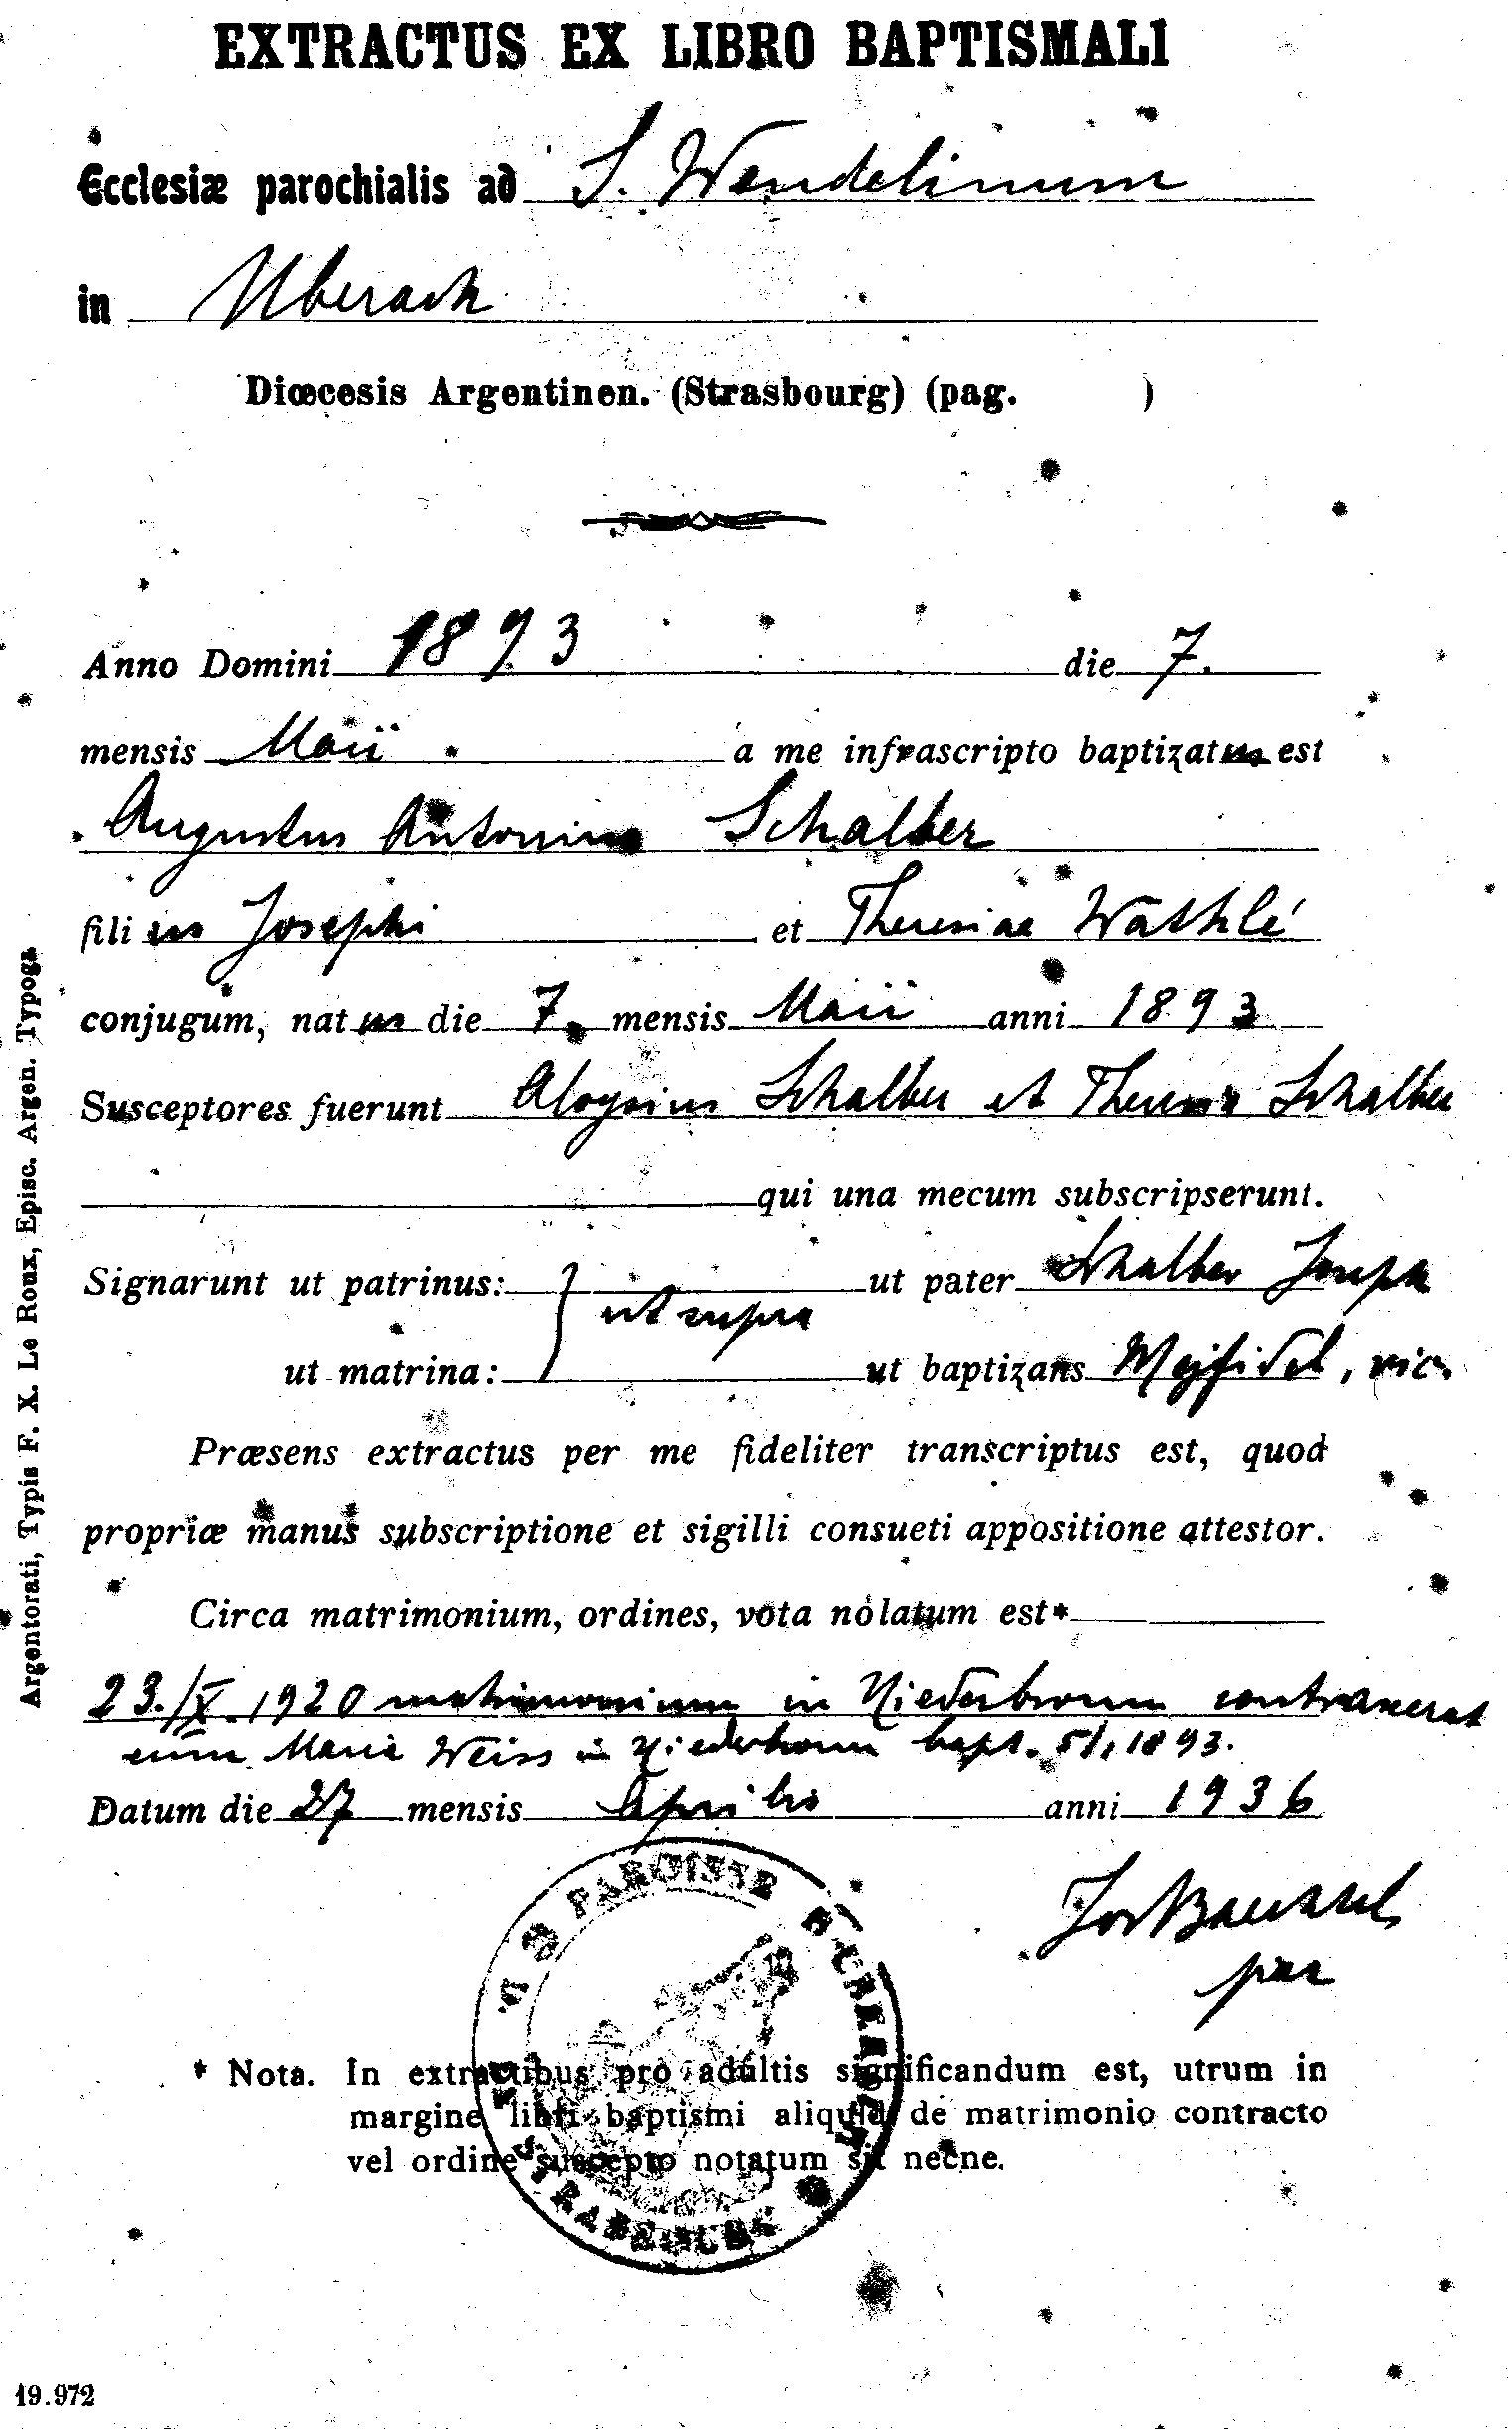 EXTRACTUS EX LIBRO BAPTISMALI
Ecclesiæ parochialis ad S. Wendelinum
in Uberach
Diœcesis Argentinen. (Strasbourg) (pag. )
Anno Domini 1893 die 7.
mensis Maii a me infrascripto baptizatus est
Augustus Antonius Schalber
filius Josephi et Theresiae Wathlé
conjugum, natus die 7. mensis Maii anni 1893
Susceptores fuerunt Aloysius Schalber et Theresia Schalber
qui una mecum subscripserunt.
Signarunt ut patrinus: ut pater Schalber Joseph
ut supra
ut matrina: ut baptizans , vic.
Præsens extractus per me fideliter transcriptus est, quod
propriæ manus subscriptione et sigilli consueti appositione attestor.
Circa matrimonium, ordines, vota notatum est*
23./X. 1920 matrimonium in Niederbronn contraxerat
cum Maria Weiss in Niederbronn bapt. 5/1 1893.
Datum die 27 mensis Aprilis anni 1936
PAROISSE D'UBERACH
STRASBOURG
Jos
* Nota. In extractibus pro adultis significandum est, utrum in
margine libri baptismi aliquid de matrimonio contracto
vel ordine suscepto notatum sit necne.
Argentorati, Typis F. X. Le Roux, Episc. Argen. Typogr.
19.972